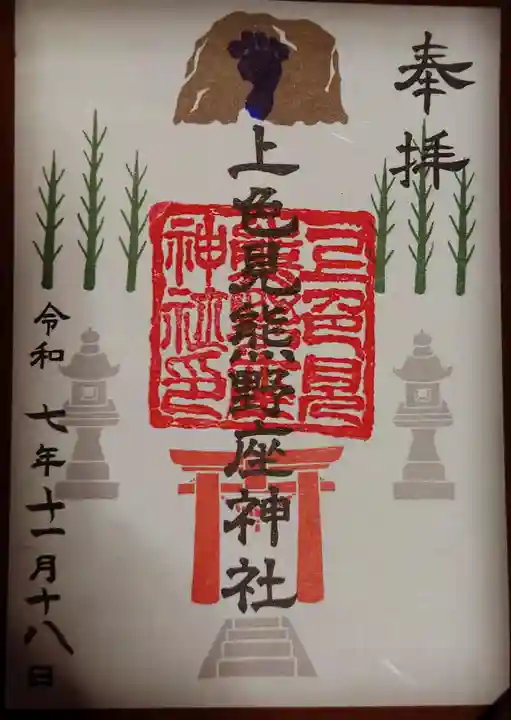 奉拝
上色見熊野座神社
上色見熊野座神社印
令和 七年十一月十八日